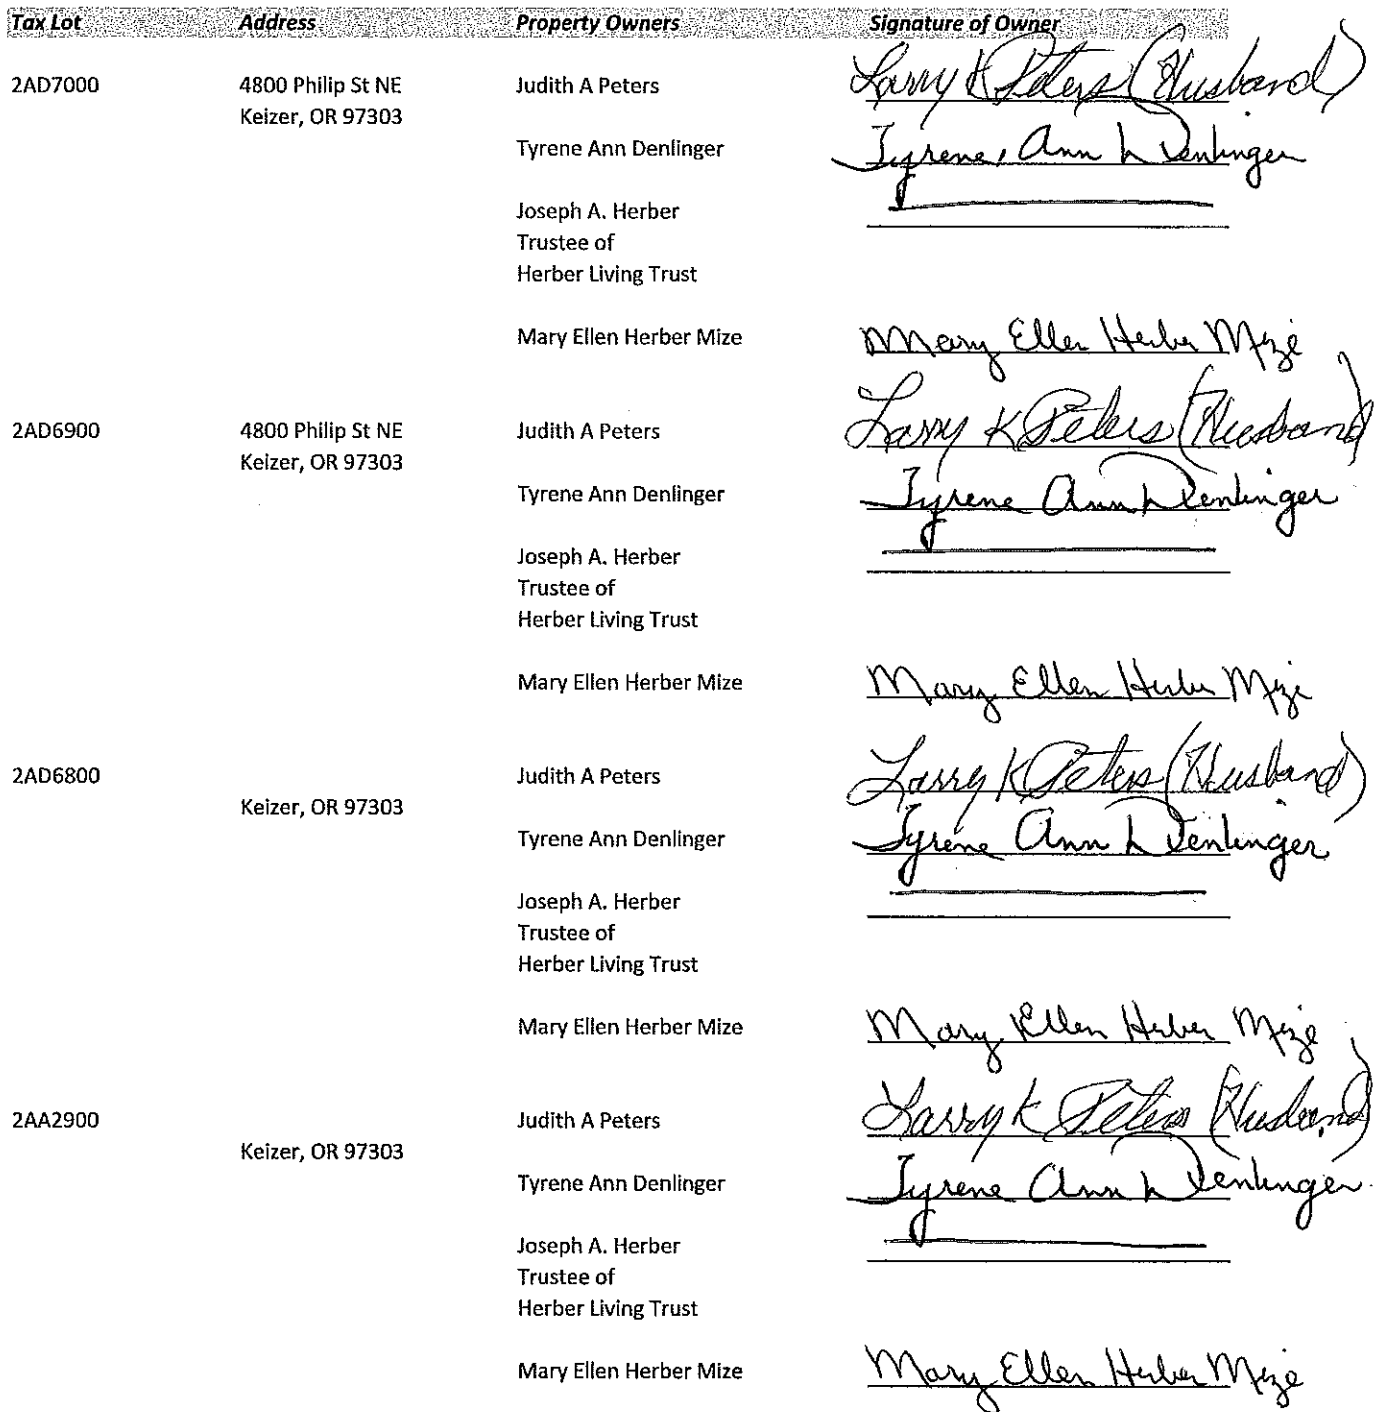 Tax Lot Address Property Owners Signature of Owner
2AD7000 4800 Philip St NE Judith A Peters Larry K Peters (Husband)
Keizer, OR 97303
Tyrene Ann Denlinger Tyrene Ann Denlinger
Joseph A. Herber
Trustee of
Herber Living Trust
Mary Ellen Herber Mize Mary Ellen Herber Mize
2AD6900 4800 Philip St NE Judith A Peters Larry K Peters (Husband)
Keizer, OR 97303
Tyrene Ann Denlinger Tyrene Ann Denlinger
Joseph A. Herber
Trustee of
Herber Living Trust
Mary Ellen Herber Mize Mary Ellen Herber Mize
2AD6800 Judith A Peters Larry K Peters (Husband)
Keizer, OR 97303
Tyrene Ann Denlinger Tyrene Ann Denlinger
Joseph A. Herber
Trustee of
Herber Living Trust
Mary Ellen Herber Mize Mary Ellen Herber Mize
2AA2900 Judith A Peters Larry K Peters (Husband)
Keizer, OR 97303
Tyrene Ann Denlinger Tyrene Ann Denlinger
Joseph A. Herber
Trustee of
Herber Living Trust
Mary Ellen Herber Mize Mary Ellen Herber Mize